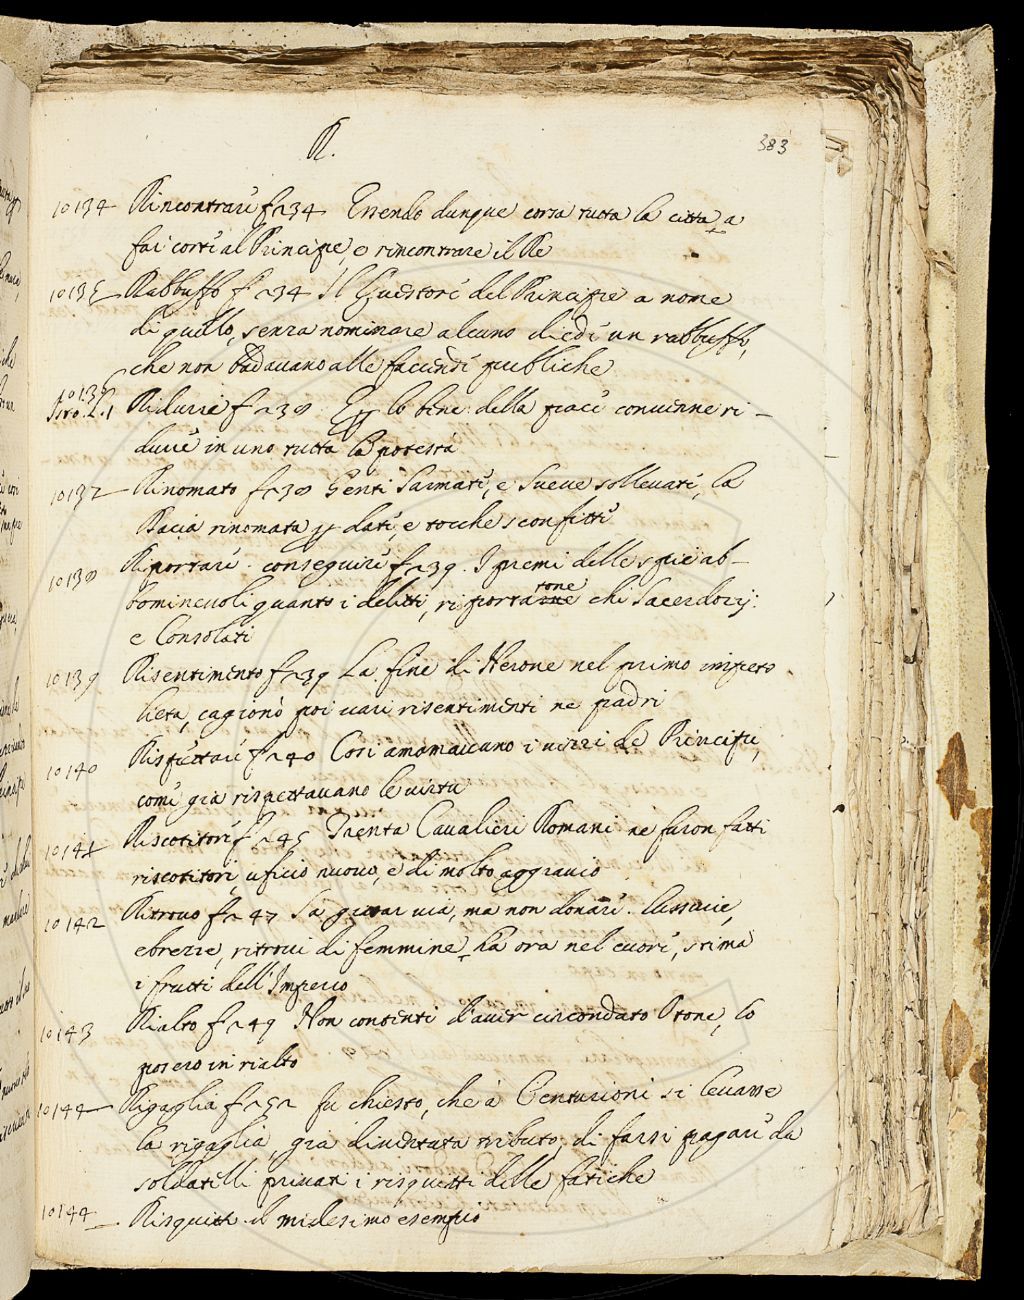 R.
383
10134 Rincontrare f 234 Essendo dunque corsa tutta la citta a
far corte al Principe, e rincontrare il Re
10135 Rabbuffo f 234 Il Questore del Principe a nome
di quello, senza nominare alcuno diede un rabbuffo,
che non badavano alle facende publiche
10136
Isto. L. 1 Ridurre f 238 Per lo bene della pace convenne ri-
durre in uno tutta la potestà
10137 Rinomato f 238 Genti Sarmate, e Sueve sollevate, la
Dacia rinomata per date, e tocche sconfitte
10138 Riportare. conseguire f 239. I premi delle spie ab-
bominevoli quanto i delitti, riportarne tone chi Sacerdozij:
e Consolati
10139 Risentimento f 239 La fine di Nerone nel primo impeto
lieta, cagionò poi vari risentimenti ne padri
10140 Rispettare f 240 Cosi amamavano i vizzi de Principe,
come gia rispettavano le virtu
10141 Riscotitore f 245 Trenta Cavalieri Romani ne furon fatti
riscotitori, uficio nuovo, e di molto aggravio
10142 Ritrovo f 247 Sa gittar via, ma non donare. Lussurie,
ebrezze, ritrovi di femmine ha ora nel cuore, stima
i frutti dell'Imperio
10143 Rialto f 249 Non contenti d'aver circondato Otone, lo
posero in rialto
10144 Rigaglia f 252 fu chiesto, che a Centurioni si levasse
la rigaglia, gia diventata tributo, di farsi pagare da
soldatelli privati i risquitti delle fatiche
10144 Risquitt. il midesimo esempio